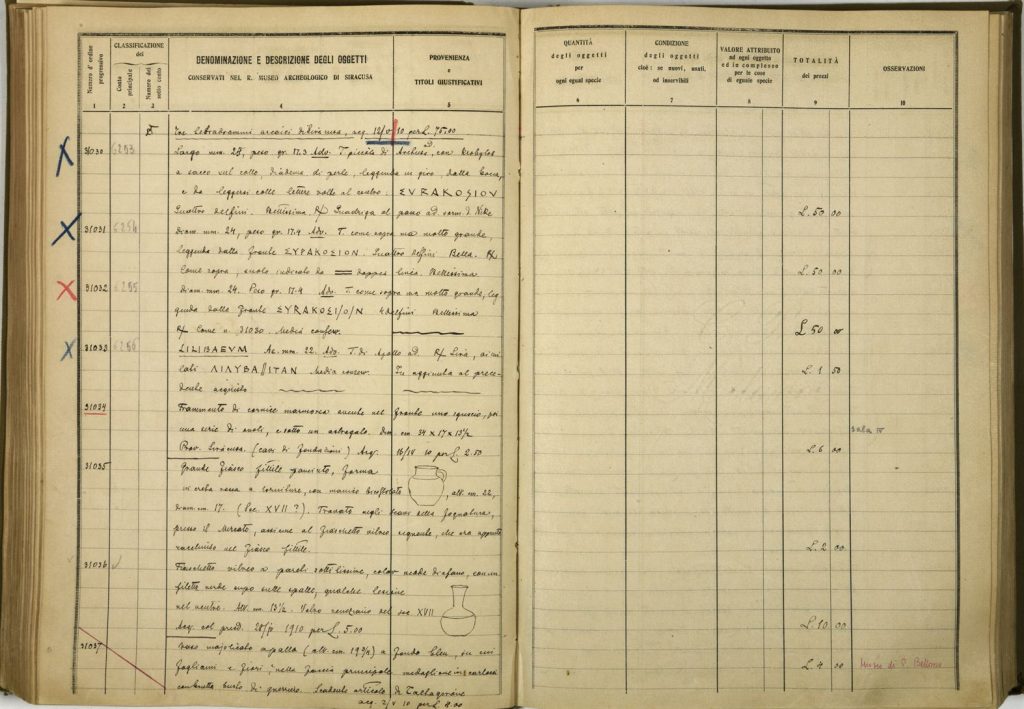 Numero d'ordine progressivo
CLASSIFICAZIONE
del
Conto principale
Numero del sotto conto
DENOMINAZIONE E DESCRIZIONE DEGLI OGGETTI
CONSERVATI NEL R. MUSEO ARCHEOLOGICO DI SIRACUSA
PROVENIENZA
e
TITOLI GIUSTIFICATIVI
1 2 3 4 5
Tre tetradrammi arcaici di Siracusa, acq. 12/V 10 per L. 75.00
31030 6293 Largo mm. 28, peso gr. 17.3 Adv. T. piccola di Arethusa, con krobylos
a sacco sul collo, diadema di perle, leggenda in giro, dalla bocca,
e da leggersi colle lettere volte al centro. ΣVRAKOΣION
Quattro delfini. Bellissima. R/ Quadriga al passo ad.
31031 6294 diam. mm. 24, peso gr. 17.4 Adv. T. come sopra ma molto grande,
leggenda dalla fronte ΣYPAKOΣION. Quattro delfini Bella. R/
Come sopra, suolo indicato da doppia linea. Bellissima
31032 6295 diam. mm. 24. Peso gr. 17.4 Adv. T. come sopra ma molto grande, leg-
genda dalla fronte ΣYRAKOΣI/O/N 4 delfini Bellissima
R/ Come n. 31030. Media conserv.
31033 6296 LILIBAEVM Ae. mm. 22. Adv. T. di Apollo ad. R/ Lira, ai cui
lati ΛΙΛΥΒΑΙΙΤΑΝ Media conserv. In aggiunta al prece-
dente acquisto
31034 Frammento di cornice marmorea avente nel fronte uno sguscio, poi
una serie di ovoli, e sotto un astragalo. Dim. cm. 34 x 17 x 13 1/2
Prov. Siracusa. (cavi di fondazioni) Acq. 16/IV 10 per L. 2.50
31035 Grande fiasco fittile panciuto, forma
, alt. cm. 22,
diam. cm. 17. (Sec. XVII ?). Trovato negli scavi della fognatura,
presso il Mercato, assieme al fiaschetto vitreo seguente, che era appunto
racchiuso nel fiasco fittile.
31036 Fiaschetto vitreo a pareti sottilissime, color verde diafano, con un
filetto verde cupo sulle spalle, qualche lesione
nel ventre. Alt. cm. 13 1/2. Vetro veneziano del sec XVII
Acq. col preced. 1910 per L. 5.00
31037 Vaso majolicato a palla (alt. cm. 19 3/4) a fondo bleu, su cui
fogliami e fiori; nella faccia principale medaglione in cartocci
contenente busto di guerriero. Scadente articolo di Caltagirone
acq. 2/V 10 per L. 4.00
QUANTITÀ
degli oggetti
per
ogni egual specie
CONDIZIONE
degli oggetti
cioè: se nuovi, usati,
od inservibili
VALORE ATTRIBUITO
ad ogni oggetto
ed in complesso
per le cose
di eguale specie
TOTALITÀ
dei prezzi
OSSERVAZIONI
6 7 8 9 10
L. 50 00
L. 50 00
L 50 00
L. 1 50
Sala IV
L. 6 00
L. 2 00
L. 10 00
L. 4 00 Museo di P. Bellomo